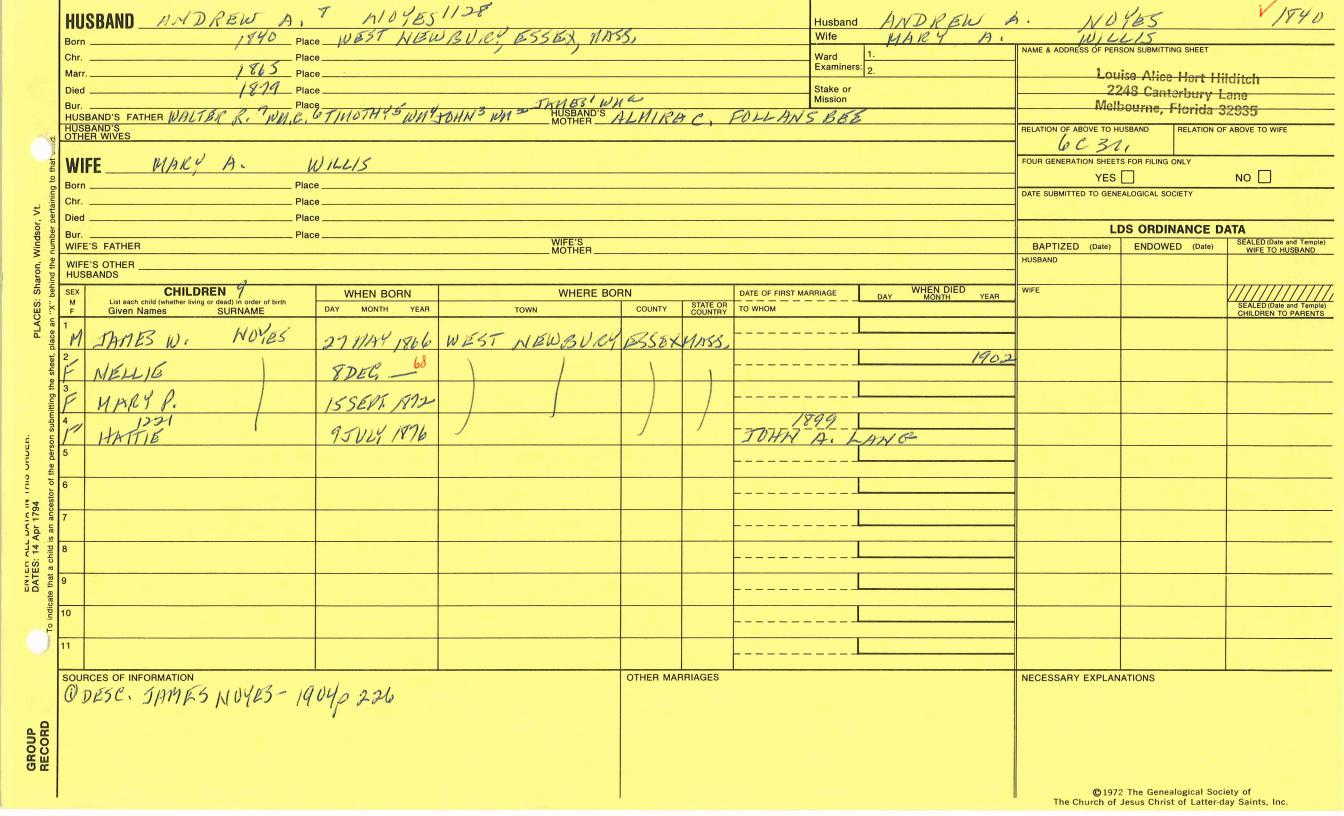 HUSBAND ANDREW A. NOYES 1128
Born 1840 Place WEST NEWBURY, ESSEX, MASS.
Chr. Place
Marr. 1865 Place
Died 1879 Place
Bur. Place
HUSBAND'S FATHER WALTER R. WM.C. 6 TIMOTHY 5 WM 4 JOHN 3 WM 2 JAMES' HUSBAND'S MOTHER ALMIRA C. FOLLANSBEE
HUSBAND'S OTHER WIVES
Husband ANDREW A. NOYES 1840
Wife MARY A. WILLIS
Ward Examiners: 1.
2.
Stake or Mission
NAME & ADDRESS OF PERSON SUBMITTING SHEET
Louise Alice Hart Hilditch
2248 Canterbury Lane
Melbourne, Florida 32935
RELATION OF ABOVE TO HUSBAND RELATION OF ABOVE TO WIFE
6C 3r.
FOUR GENERATION SHEETS FOR FILING ONLY
YES NO
DATE SUBMITTED TO GENEALOGICAL SOCIETY
WIFE MARY A. WILLIS
Born Place
Chr. Place
Died Place
Bur. Place
WIFE'S FATHER WIFE'S MOTHER
WIFE'S OTHER HUSBANDS
LDS ORDINANCE DATA
BAPTIZED (Date) ENDOWED (Date) SEALED (Date and Temple) WIFE TO HUSBAND
HUSBAND
WIFE
SEALED (Date and Temple) CHILDREN TO PARENTS
SEX M F
CHILDREN 9
List each child (whether living or dead) in order of birth
Given Names SURNAME
WHEN BORN
DAY MONTH YEAR
WHERE BORN
TOWN COUNTY STATE OR COUNTRY
DATE OF FIRST MARRIAGE
TO WHOM
WHEN DIED
DAY MONTH YEAR
1 M JAMES W. NOYES 27 MAY 1866 WEST NEWBURY ESSEX MASS.
2 F NELLIE 8 DEC 68 1902
3 F MARY P. 15 SEPT 1872
4 F HATTIE 1221 9 JULY 1876 1899 JOHN A. LANG
5
6
7
8
9
10
11
SOURCES OF INFORMATION
① DESC. JAMES NOYES - 1904 p 226
OTHER MARRIAGES
NECESSARY EXPLANATIONS
©1972 The Genealogical Society of
The Church of Jesus Christ of Latter-day Saints, Inc.
PLACES: Sharon, Windsor, Vt.
DATES: 14 Apr 1794
ENTER ALL DATA IN THIS ORDER:
To indicate that a child is an ancestor of the person submitting the sheet, place an "X" behind the number pertaining to that child.
GROUP RECORD